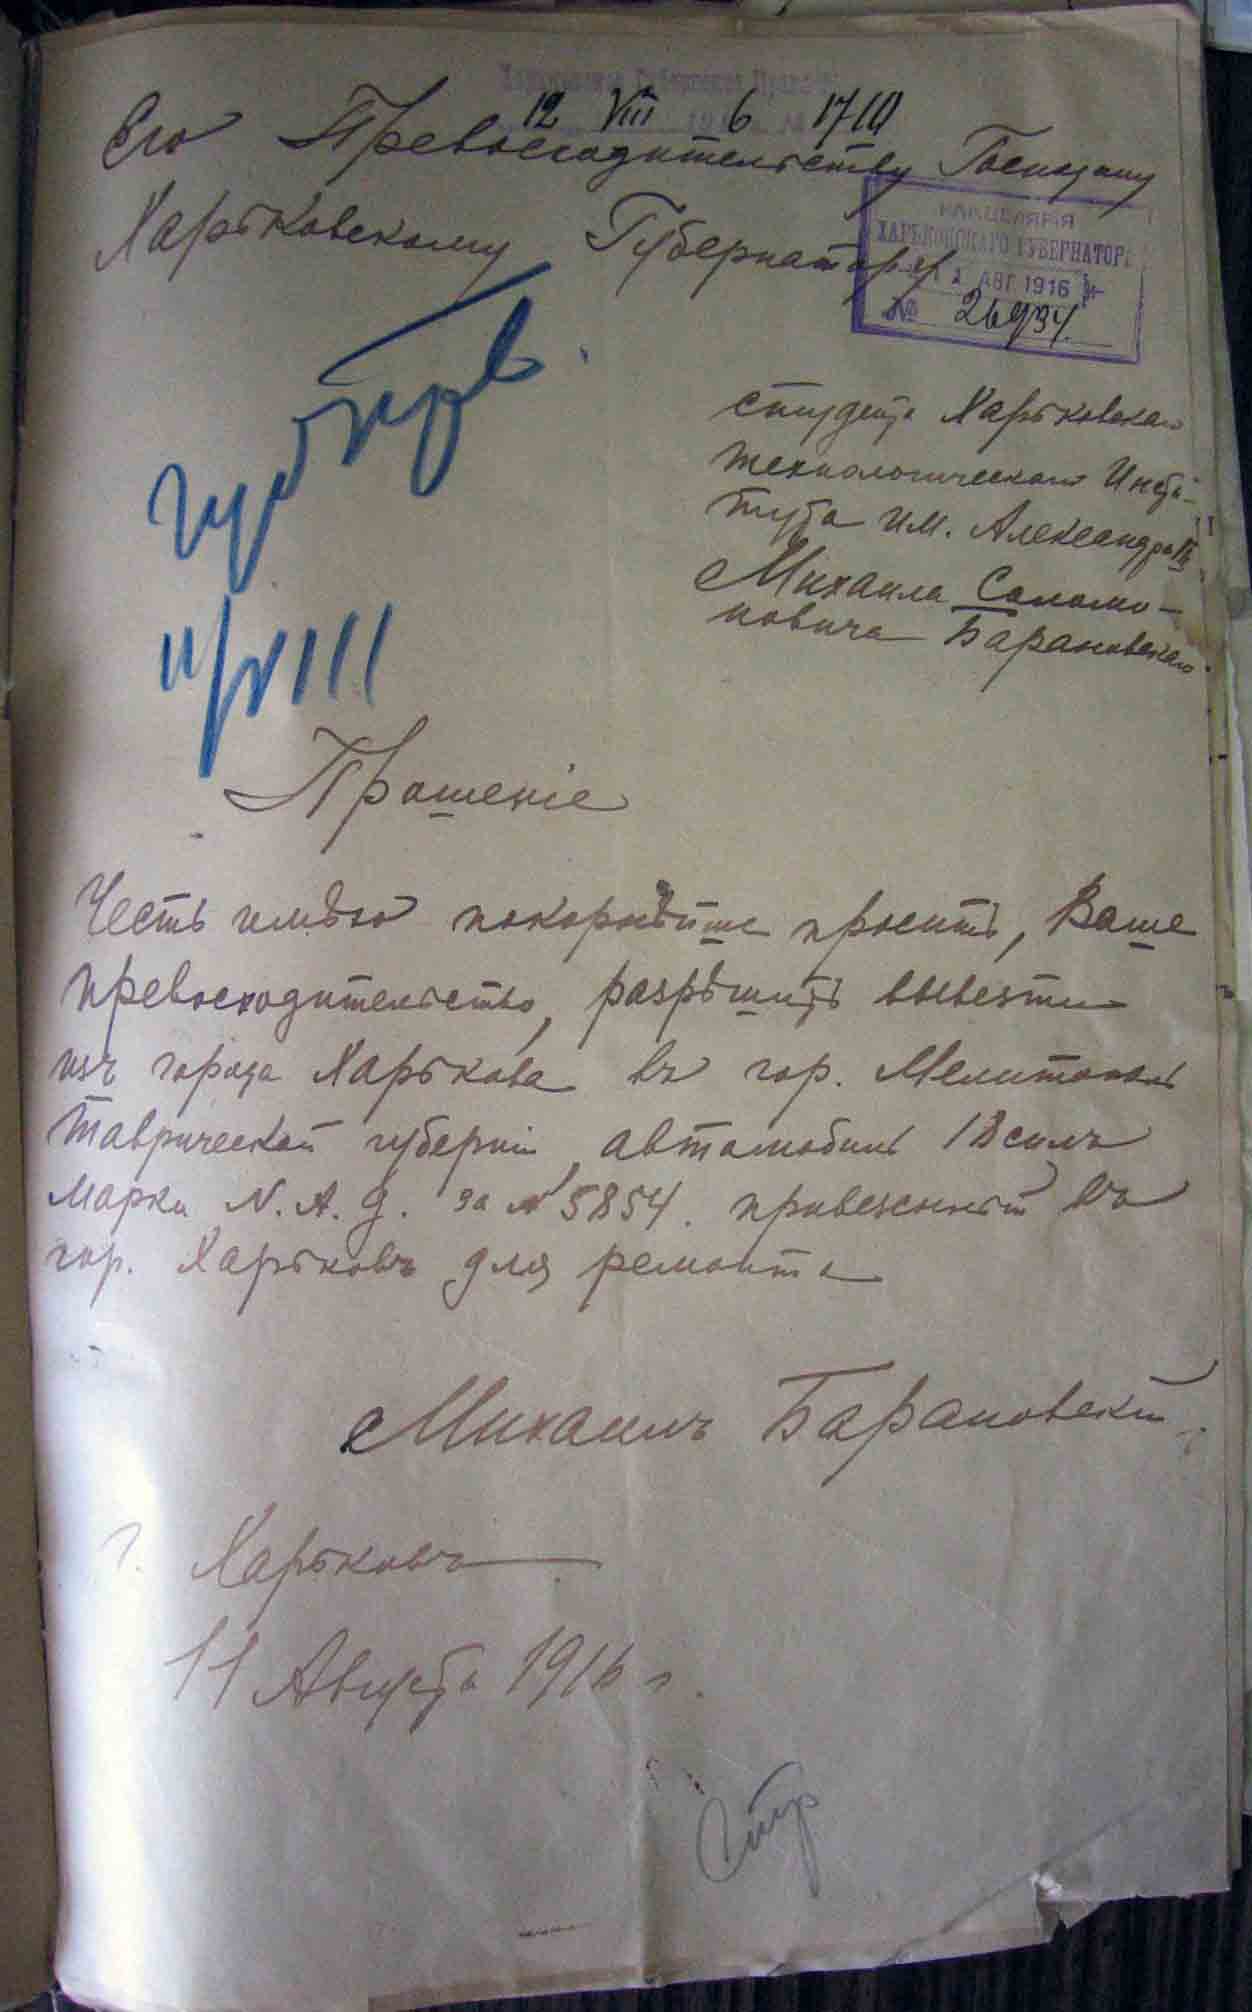 Харьковское Губернское Правленіе
12 VIII 6 1710
Его Превосходительству Господину
Харьковскому Губернатору
КАНЦЕЛЯРІЯ
ХАРЬКОВСКАГО ГУБЕРНАТОРА
АВГ 1916
№ 26934
губ пр
11/VIII
студента Харьковскаго
технологическаго Инсти-
тута им. Александра III
Михаила Соломо-
новича Барановскаго
Прошеніе
Честь имѣю покорнѣйше просить, Ваше
превосходительство, разрѣшить вывезти
изъ города Харькова въ гор. Мелитополь
Таврической губерніи, автомобиль 18 силъ
марки N.A.G. за № 5854. привезенный въ
гор. Харьковъ для ремонта
Михаилъ Барановскій
г. Харьковъ
11 Августа 1916 г.